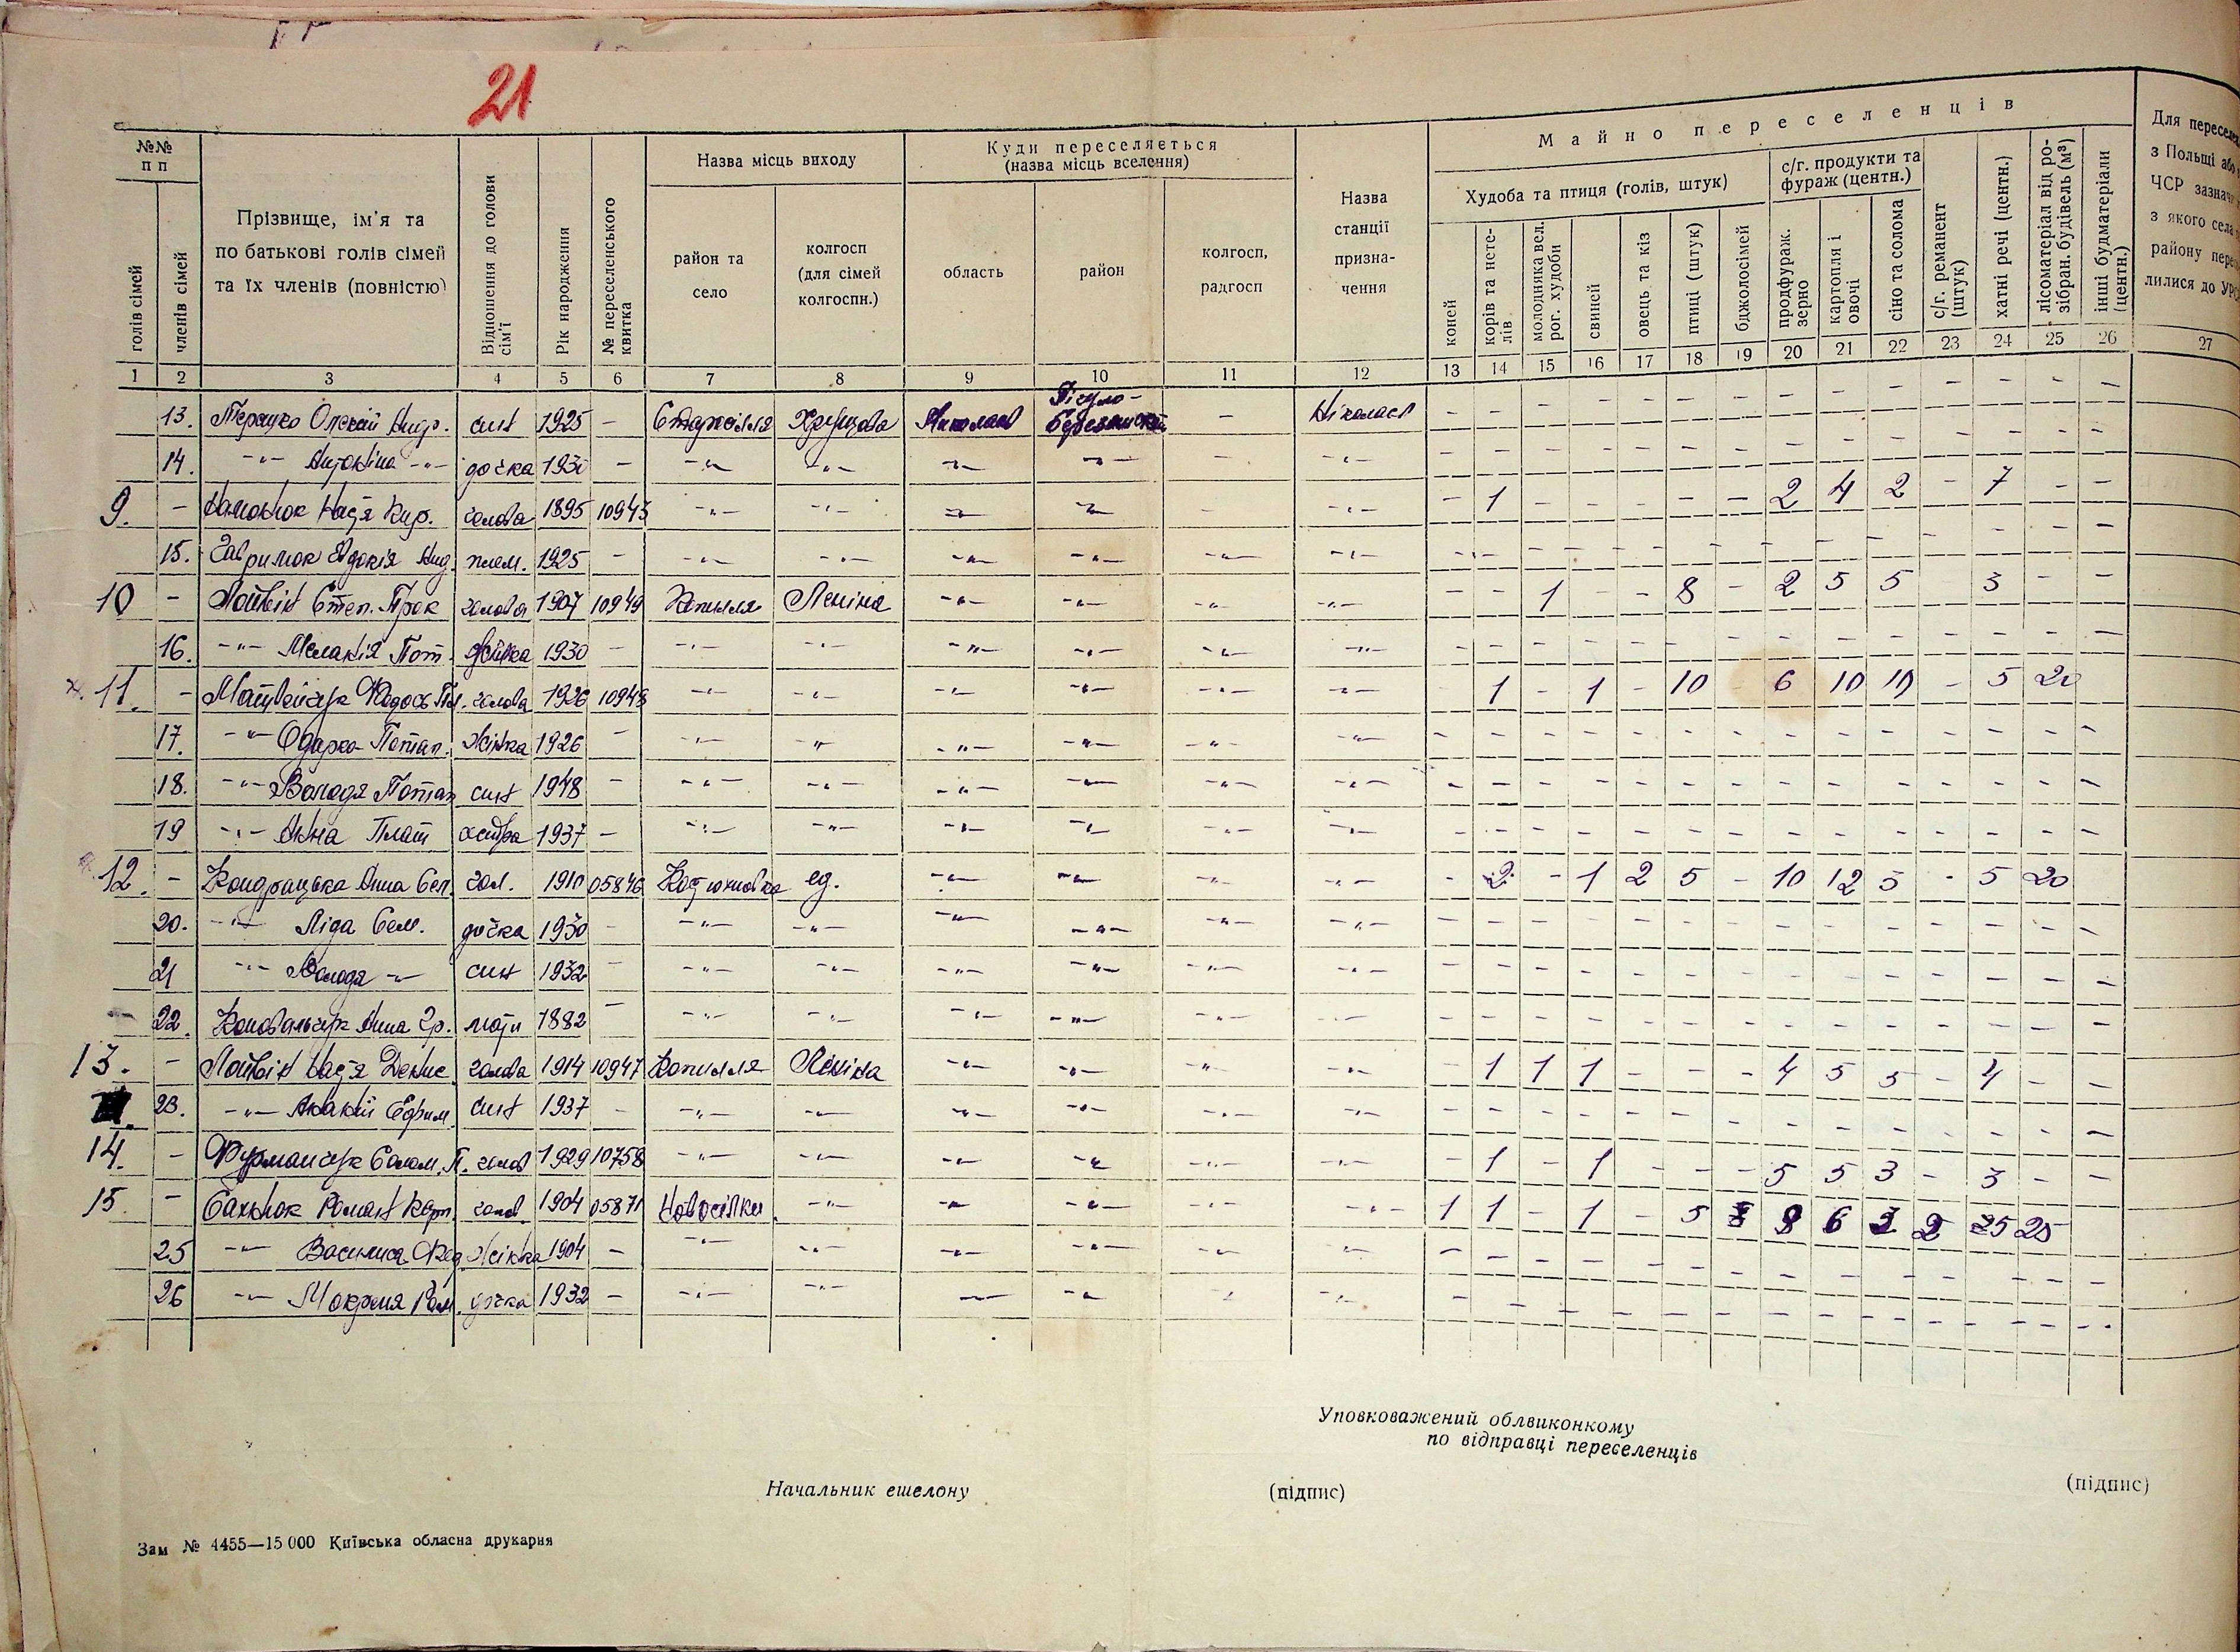 21
№№ п п
голів сімей
членів сімей
Прізвище, ім'я та
по батькові голів сімей
та їх членів (повністю)
Відношення до голови сім'ї
Рік народження
№ переселенського квитка
Назва місць виходу
район та
село
колгосп
(для сімей
колгоспн.)
Куди переселяється
(назва місць вселення)
область
район
колгосп,
радгосп
Назва
станції
призна-
чення
Майно переселенців
Худоба та птиця (голів, штук)
коней
корів та нете-
лів
молодника вел.
рог. худоби
свиней
овець та кіз
птиці (штук)
бджолосімей
с/г. продукти та
фураж (центн.)
продфураж.
зерно
картопля і
овочі
сіно та солома
с/г. реманент
(штук)
хатні речі (центн.)
лісоматеріал від ро-
зібран. будівель (м³)
інші будматеріали
(центн.)
Для пересел
з Польщі або
ЧСР зазнач
з якого села
району пере
лилися до УР
1 2 3 4 5 6 7 8 9 10 11 12 13 14 15 16 17 18 19 20 21 22 23 24 25 26 27
13. Олексій Андр. син 1925 - Хрущова Миколаїв - Ніколаєв - -
14. -"- -"- дочка 1930 - -"- -"- -"- -"- - -"-
9. - Настя Кир. голова 1895 10943 -"- -"- -"- -"- - -"- - 1 - - - - 2 4 2 - 7 - -
15. Гаврилюк Євдокія Анд. плем. 1925 - -"- -"- -"- -"- -"- -"-
10 - Літвін Степ. Прок голова 1907 10949 Копилля Леніна -"- -"- -"- -"- - - 1 - - 8 - 2 5 5 3 - -
16. -"- Меланія Пот. жінка 1930 - -"- -"- -"- -"- -"- -"-
11. - Матвейчук Федось Пл. голова 1926 10948 -"- -"- -"- -"- -"- -"- - 1 - 1 - 10 - 6 10 10 - 5 20
17. -"- Одарка Потап. жінка 1926 - -"- -"- -"- -"- -"- -"-
18. -"- Володя Потап син 1948 - -"- -"- -"- -"- -"- -"-
19 -"- Анна Плат сестра 1937 - -"- -"- -"- -"- -"- -"-
12. - Кондрацька Анна Сел. гол. 1910 05846 Костюхновка ед. -"- -"- -"- -"- - 2 - 1 2 5 - 10 12 5 - 5 20
20. -"- Ліда Сем. дочка 1930 - -"- -"- -"- -"- -"- -"-
21 -"- Володя -"- син 1932 - -"- -"- -"- -"- -"- -"-
22. Коновальчук Анна Гр. мати 1882 - -"- -"- -"- -"- -"-
13. - Літвін Настя Денис. голова 1914 10947 Копилля Леніна -"- -"- -"- -"- - 1 1 1 - - - 4 5 5 - 4 - -
23. -"- Єфрим. син 1937 - -"- -"- -"- -"- -"- -"-
14. - Фурманчук Солом. П. голов 1929 10758 -"- -"- -"- -"- -"- -"- - 1 - 1 - - - 5 5 3 - 3 - -
15. - Роман Карп. голов. 1904 05871 Новосілки -"- -"- -"- -"- -"- 1 1 - 1 - 5 8 6 2 25 25
25 -"- Василиса Фед жінка 1904 - -"- -"- -"- -"- -"- -"-
26 -"- Мокрина Ром. дочка 1932 - -"- -"- -"- -"- -"- -"-
Уповковажений облвиконкому
по відправці переселенців
Начальник ешелону (підпис) (підпис)
Зам № 4455—15 000 Київська обласна друкарня